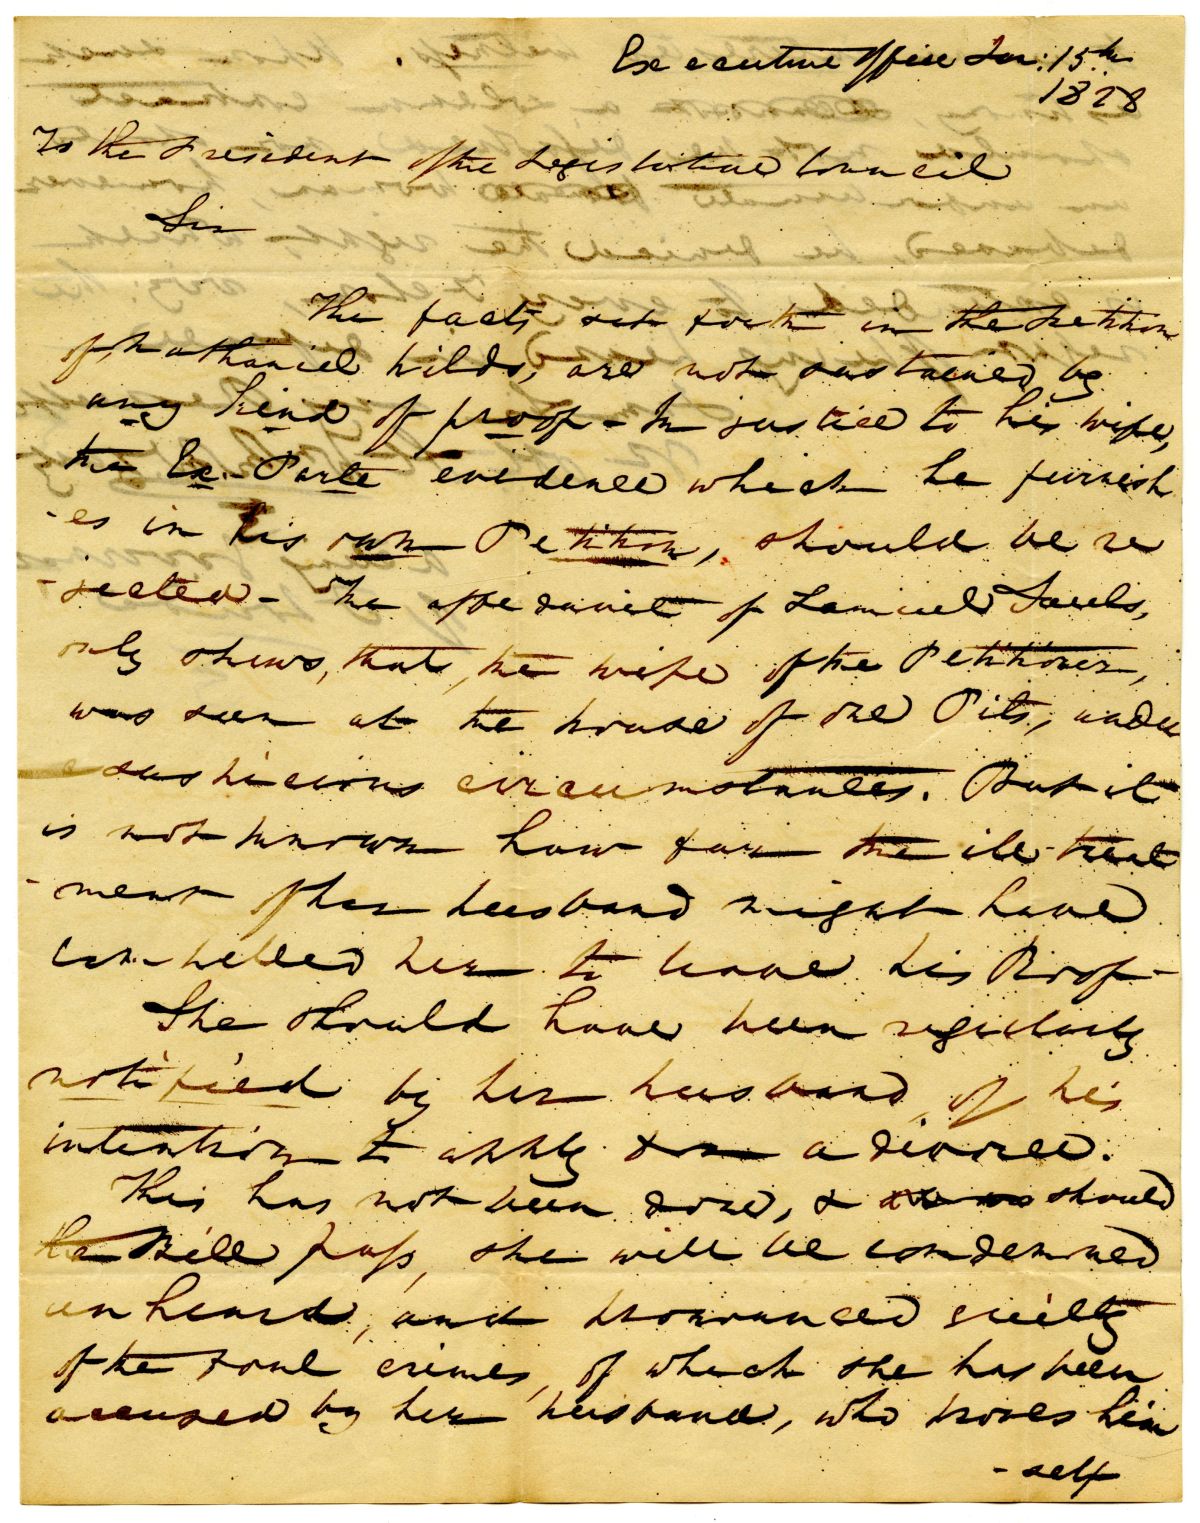 Executive office Jan: 15th
1828
To the President of the Legislative Council
Sir
The facts set forth in the Petition
of Nathaniel Wilds, are not sustained by
any kind of proof - In justice to his wife,
the Ex-Parte evidence which he furnish
-es in his own Petition, should be re
-jected - The affidavit of Samuel Sauls,
only shews, that, the wife of the Petitioner,
was seen at the house of one Pits, under
suspicious circumstances. But it
is not known how far the ill-treat
-ment of her husband might have
compelled her to leave his Roof -
She should have been regularly
notified by her husband, of his
intention to apply for a divorce.
This has not been done, & should
the Bill pass, she will be condemned
unheard, and pronounced guilty
of the foul crimes, of which she has been
accused by her husband, who proves him
-self